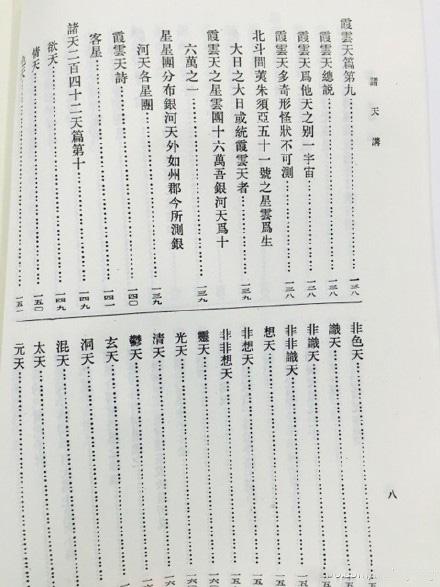 諸天講
霞雲天篇第九……一三八
霞雲天總説……一三八
霞雲天爲他天之别一宇宙……一三八
霞雲天多奇形怪狀不可測……一三八
北斗間茣朱須亞五十一號之星雲爲生
大日之大日或統霞雲天者……一三九
霞雲天之星雲團十六萬吾銀河天爲十
六萬之一……一三九
星星團分布銀河天外如州郡今所測銀
河天各星團……一三九
霞雲天詩……一四〇
客星……一四一
諸天二百四十二天篇第十……一四九
欲天……一四九
情天……一五〇
非色天
識天
非識天
非非識天
想天
非想天
非非想天
靈天
光天
清天
鬱天
玄天
洞天
混天
太天
元天
八